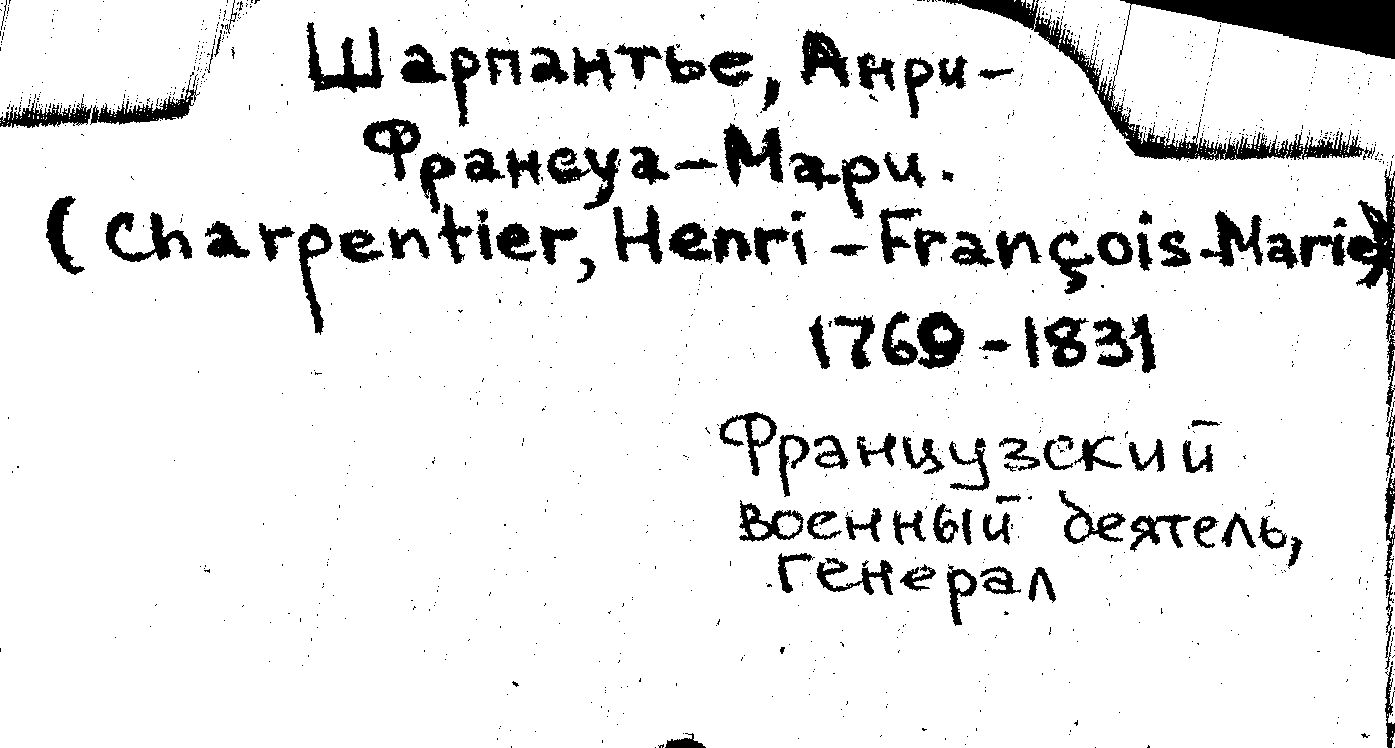 Шарпантье, Анри-
Франсуа-Мари.
(Charpentier, Henri-François-Marie)
1769-1831
Французский
военный деятель,
генерал